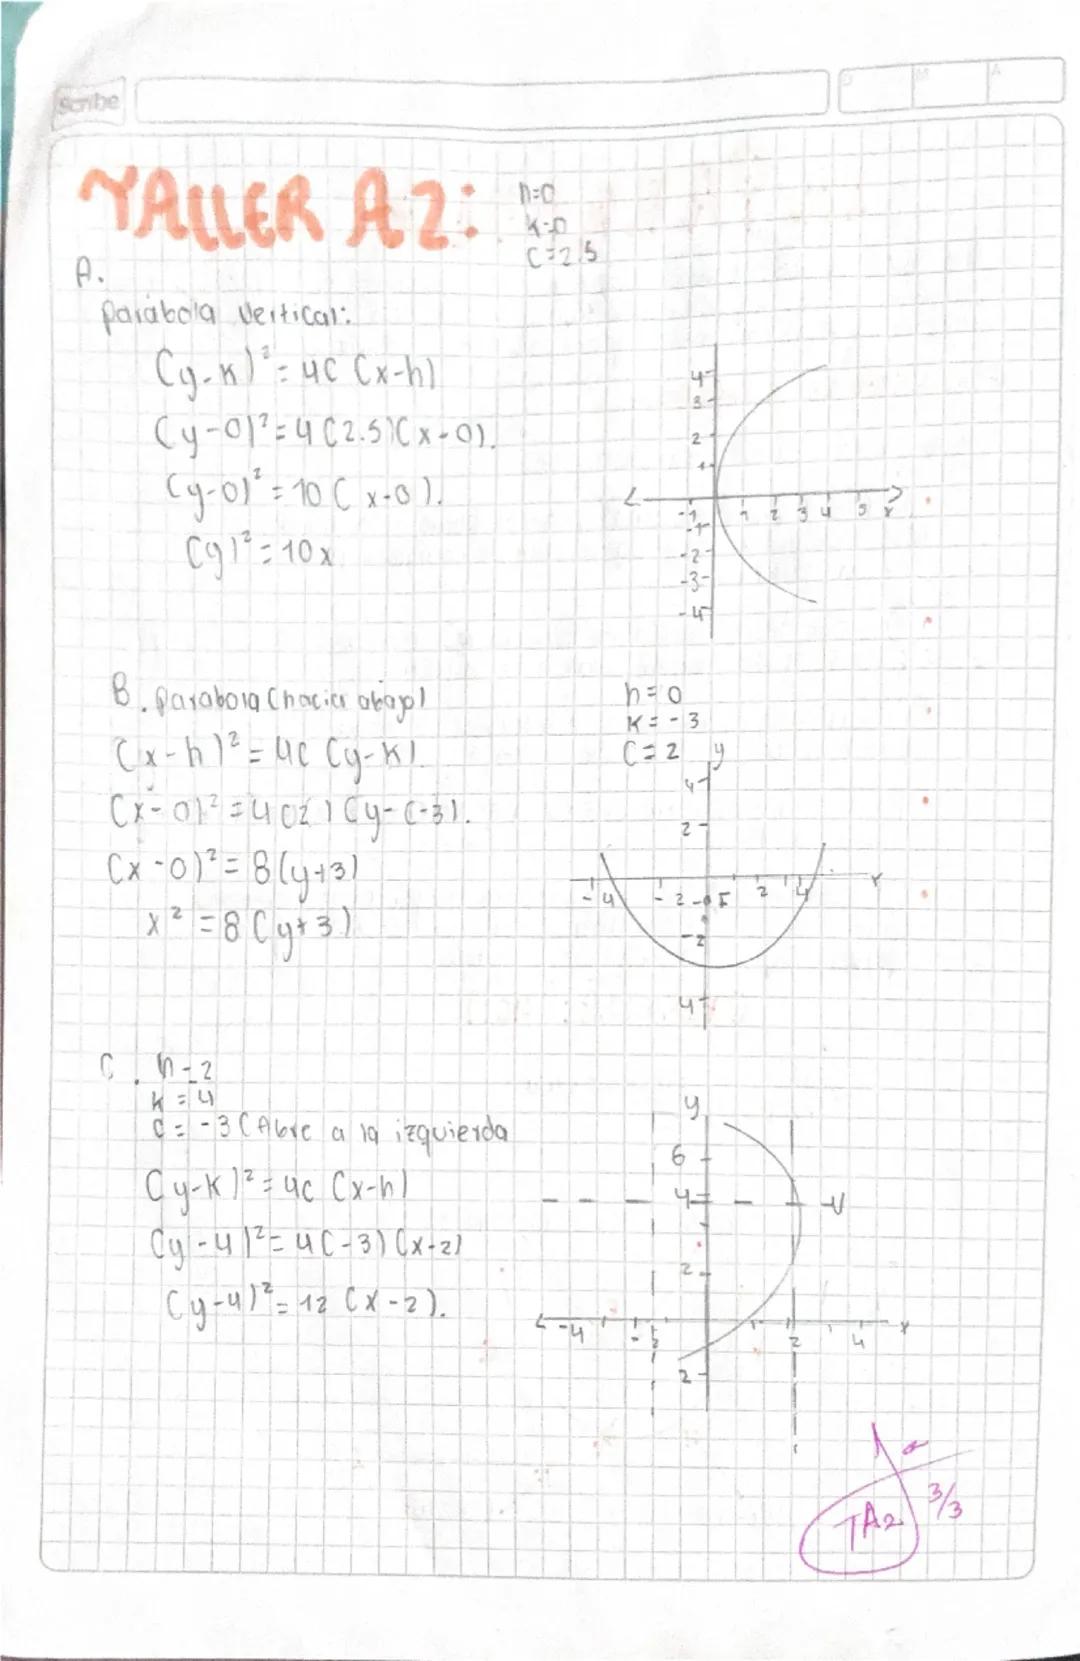 Scribe
D M A
TALLER A2:
h=0
k=0
C=2.5
A.
parábola Vertical:
(y-k)²=4C (x-h)
(y-0)²=4(2.5)(x-0).
(y-0)²=10(x-0).
(y)²=10x
4
3
2
1
-1 1 2 3 4 5 x
-1
-2
-3
-4
B. parabola (hacia abajo)
(x-h)²=4C (y-k).
(x-0)²=4(2)(y-(-3).
(x-0)²=8(y+3)
x²=8(y+3)
h=0
k=-3
C=2
y
4
2
-4 -2 F 2 4 x
-2
4
C. h=2
k=4
C=-3 (Abre a la izquierda
(y-k)²=4c (x-h)
(y-4)²=4(-3)(x-2)
(y-4)²=12 (x-2).
y
6
4 V
2
-4 2 4 x
2
TA2 3/3